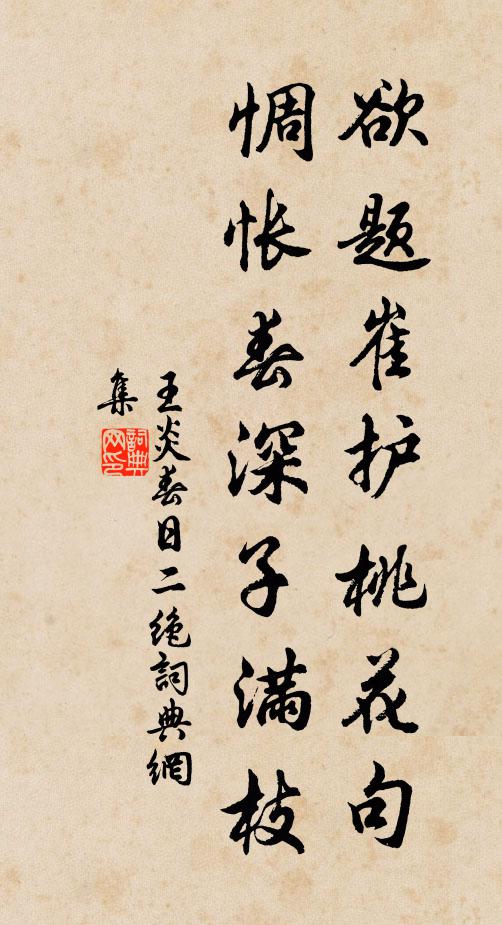 欲题崔护桃花句
惆怅春深子满枝
王炎春日二绝詞典網
集
詞典
网印